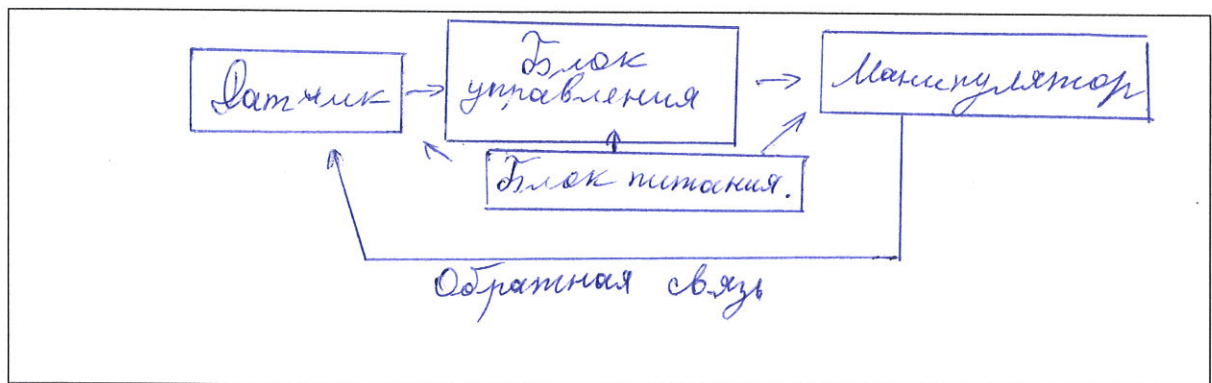 Датчик
Блок
управления
Манипулятор
Блок питания.
Обратная связь